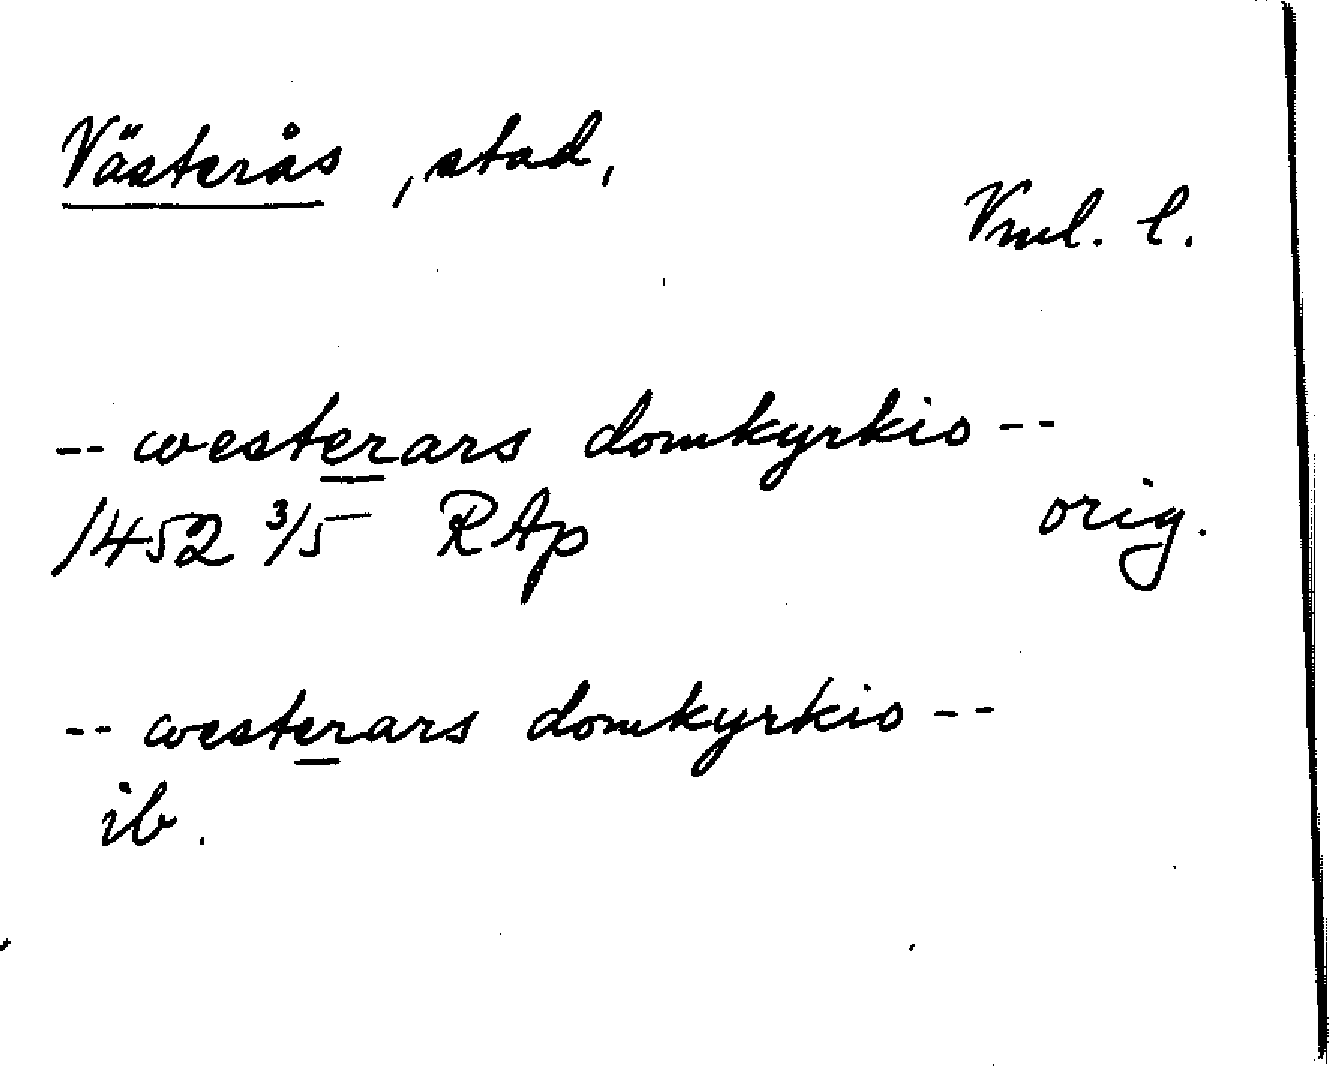 Västerås, stad,
Vml. l.
-- westerars domkyrkio --
1452 3/5 RAp orig.
-- westerars domkyrkio --
ib.